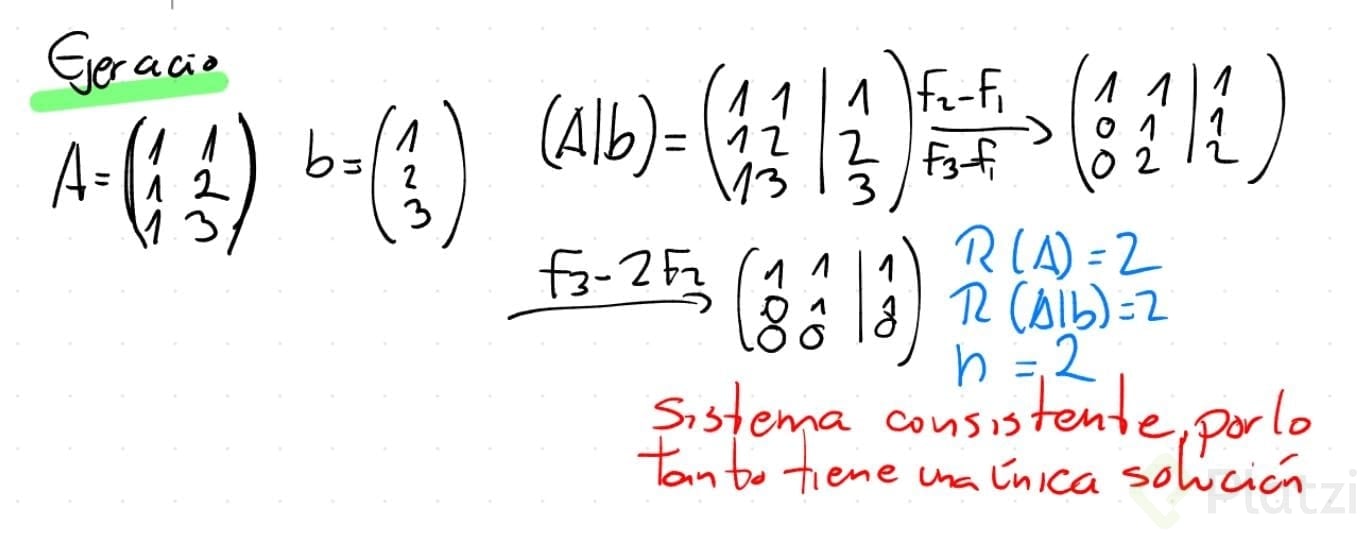 Ejercicio
A = (1 1; 1 2; 1 3) b = (1; 2; 3) (A|b) = (1 1 | 1; 1 2 | 2; 1 3 | 3) F2-F1 F3-F1 → (1 1 | 1; 0 1 | 1; 0 2 | 2)
F3-2F2 → (1 1 | 1; 0 1 | 1; 0 0 | 0)
R(A)=2
R(A|b)=2
n = 2
Sistema consistente, por lo
tanto tiene una única solución
Platzi